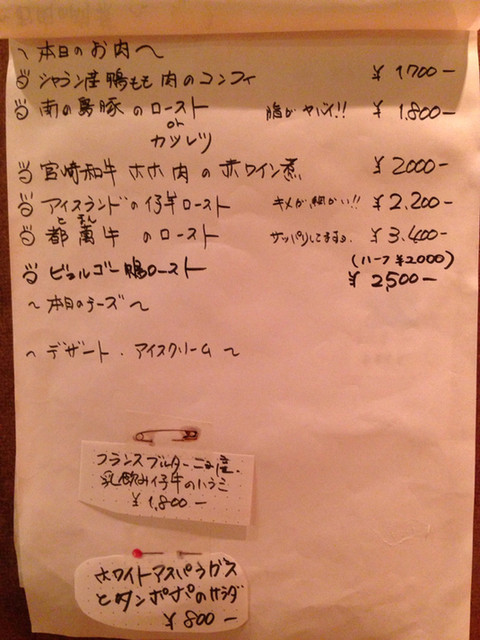 〜本日のお肉〜
シャラン産鴨もも肉のコンフィ ¥1700-
南の島豚のロースト 脂がヤバイ!! ¥1,800-
or
カツレツ
宮崎和牛ホホ肉の赤ワイン煮 ¥2000-
アイスランドの仔羊ロースト キメが細かい!! ¥2,200-
と まん
都萬牛のロースト サッパリしてます。 ¥3,400-
(ハーフ¥2000)
ビュルゴー鴨ロースト ¥2,500-
〜本日のチーズ〜
〜デザート.アイスクリーム〜
フランスブルターニュ産.
乳飲み仔牛のハラミ
¥1,800-
ホワイトアスパラガス
とタンポポのサラダ
¥800-